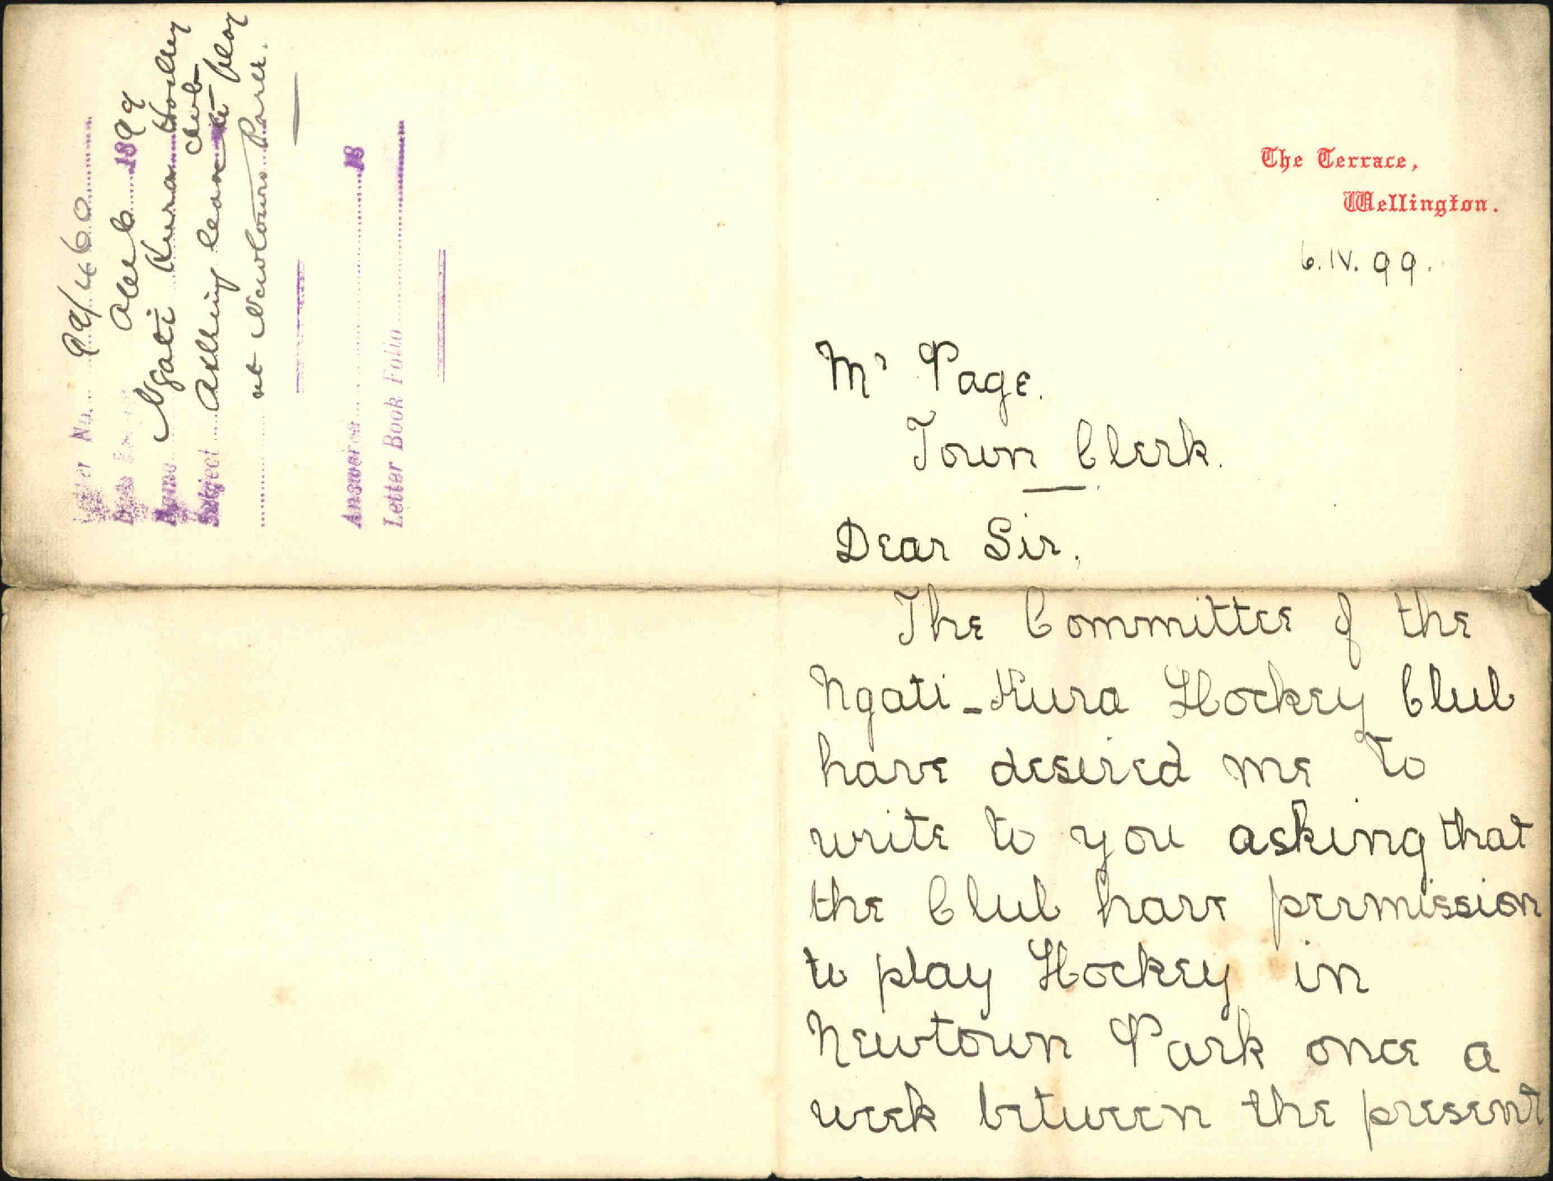 Letter No. 99/460
Date 1899
Name Ngati Kura Hockey
Club
Subject Asking leave to play
at Newtown Park.
Answered 18
Letter Book Folio
The Terrace,
Wellington.
6.IV.99.
Mr Page.
Town Clerk.
Dear Sir,
The Committee of the
Ngati-Kura Hockey Club
have desired me to
write to you asking that
the Club have permission
to play Hockey in
Newtown Park once a
week between the present